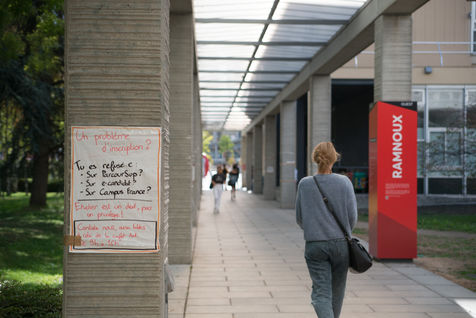 Un problème
d'inscription ?
Tu es refusé.e :
- Sur ParcourSup ?
- Sur e-candidat ?
- Sur Campus France ?
Etudier est un droit, pas
un privilège !
Contacte nous, aux tables
OUEST
RAMNOUX